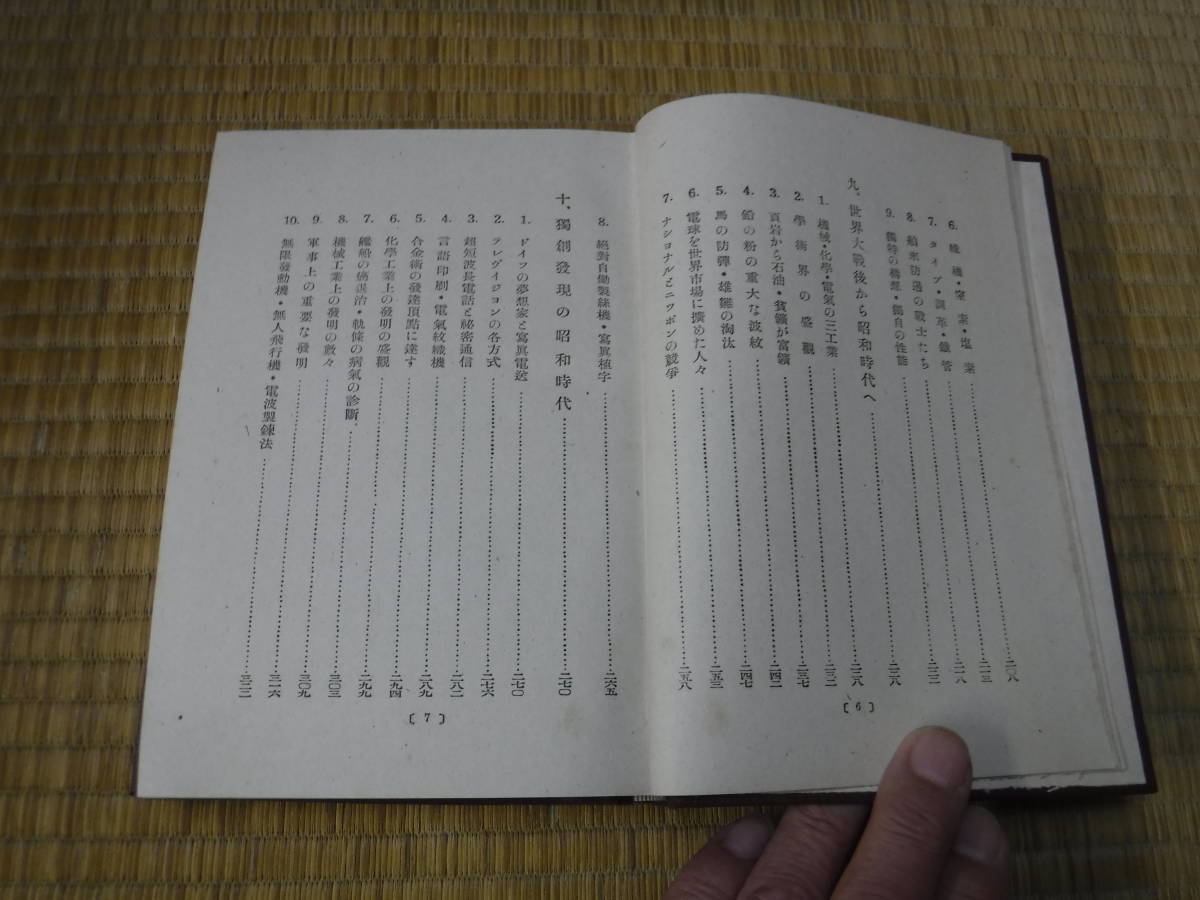 6. 機・窒素・塩素……二〇八
7. タイプ・調革・鐵管……二一三
8. 舶來防遏の戰士たち……二一八
9. 獨特の構想・獨自の性能……二二二
九、世界大戰後から昭和時代へ……二二八
1. 機械・化學・電氣の三工業……二二八
2. 學術界の盛觀……二三二
3. 頁岩から石油・貧鑛が富鑛……二三七
4. 鉛の粉の重大な波紋……二四二
5. 馬の防彈・雄雛の淘汰……二四七
6. 電球を世界市場に擴めた人々……二五三
7. ナショナルとニッポンの競爭……二五八
〔6〕
8. 絕對自働製絲機・寫眞植字……二六五
十、獨創發現の昭和時代……二七〇
1. ドイツの夢想家と寫眞電送……二七〇
2. テレヴィジョンの各方式……二七六
3. 超短波長電話と祕密通信……二八二
4. 言語印刷・電氣紋織機……二八九
5. 合金術の發達頂點に達す……二九四
6. 化學工業上の發明の盛觀……二九九
7. 艦船の病退治・軌條の病氣の診斷……三〇三
8. 機械工業上の發明の數々……三〇九
9. 軍事上の重要な發明……三一六
10. 無限發動機・無人飛行機・電波製鍊法……三二二
〔7〕